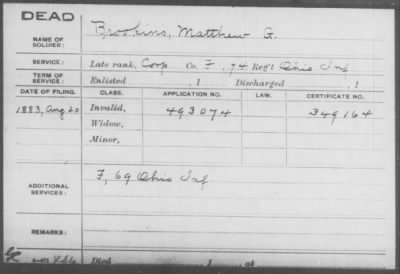 DEAD
NAME OF SOLDIER: Brokins, Matthew G.
SERVICE: Late rank, Corp Co. F, 74 Reg't Ohio Inf
TERM OF SERVICE: Enlisted , 1 Discharged , 1
DATE OF FILING. CLASS. APPLICATION NO. LAW. CERTIFICATE NO.
1883, Aug 20 Invalid, 493074 349164
Widow,
Minor,
ADDITIONAL SERVICES: F, 69 Ohio Inf
REMARKS:
Died